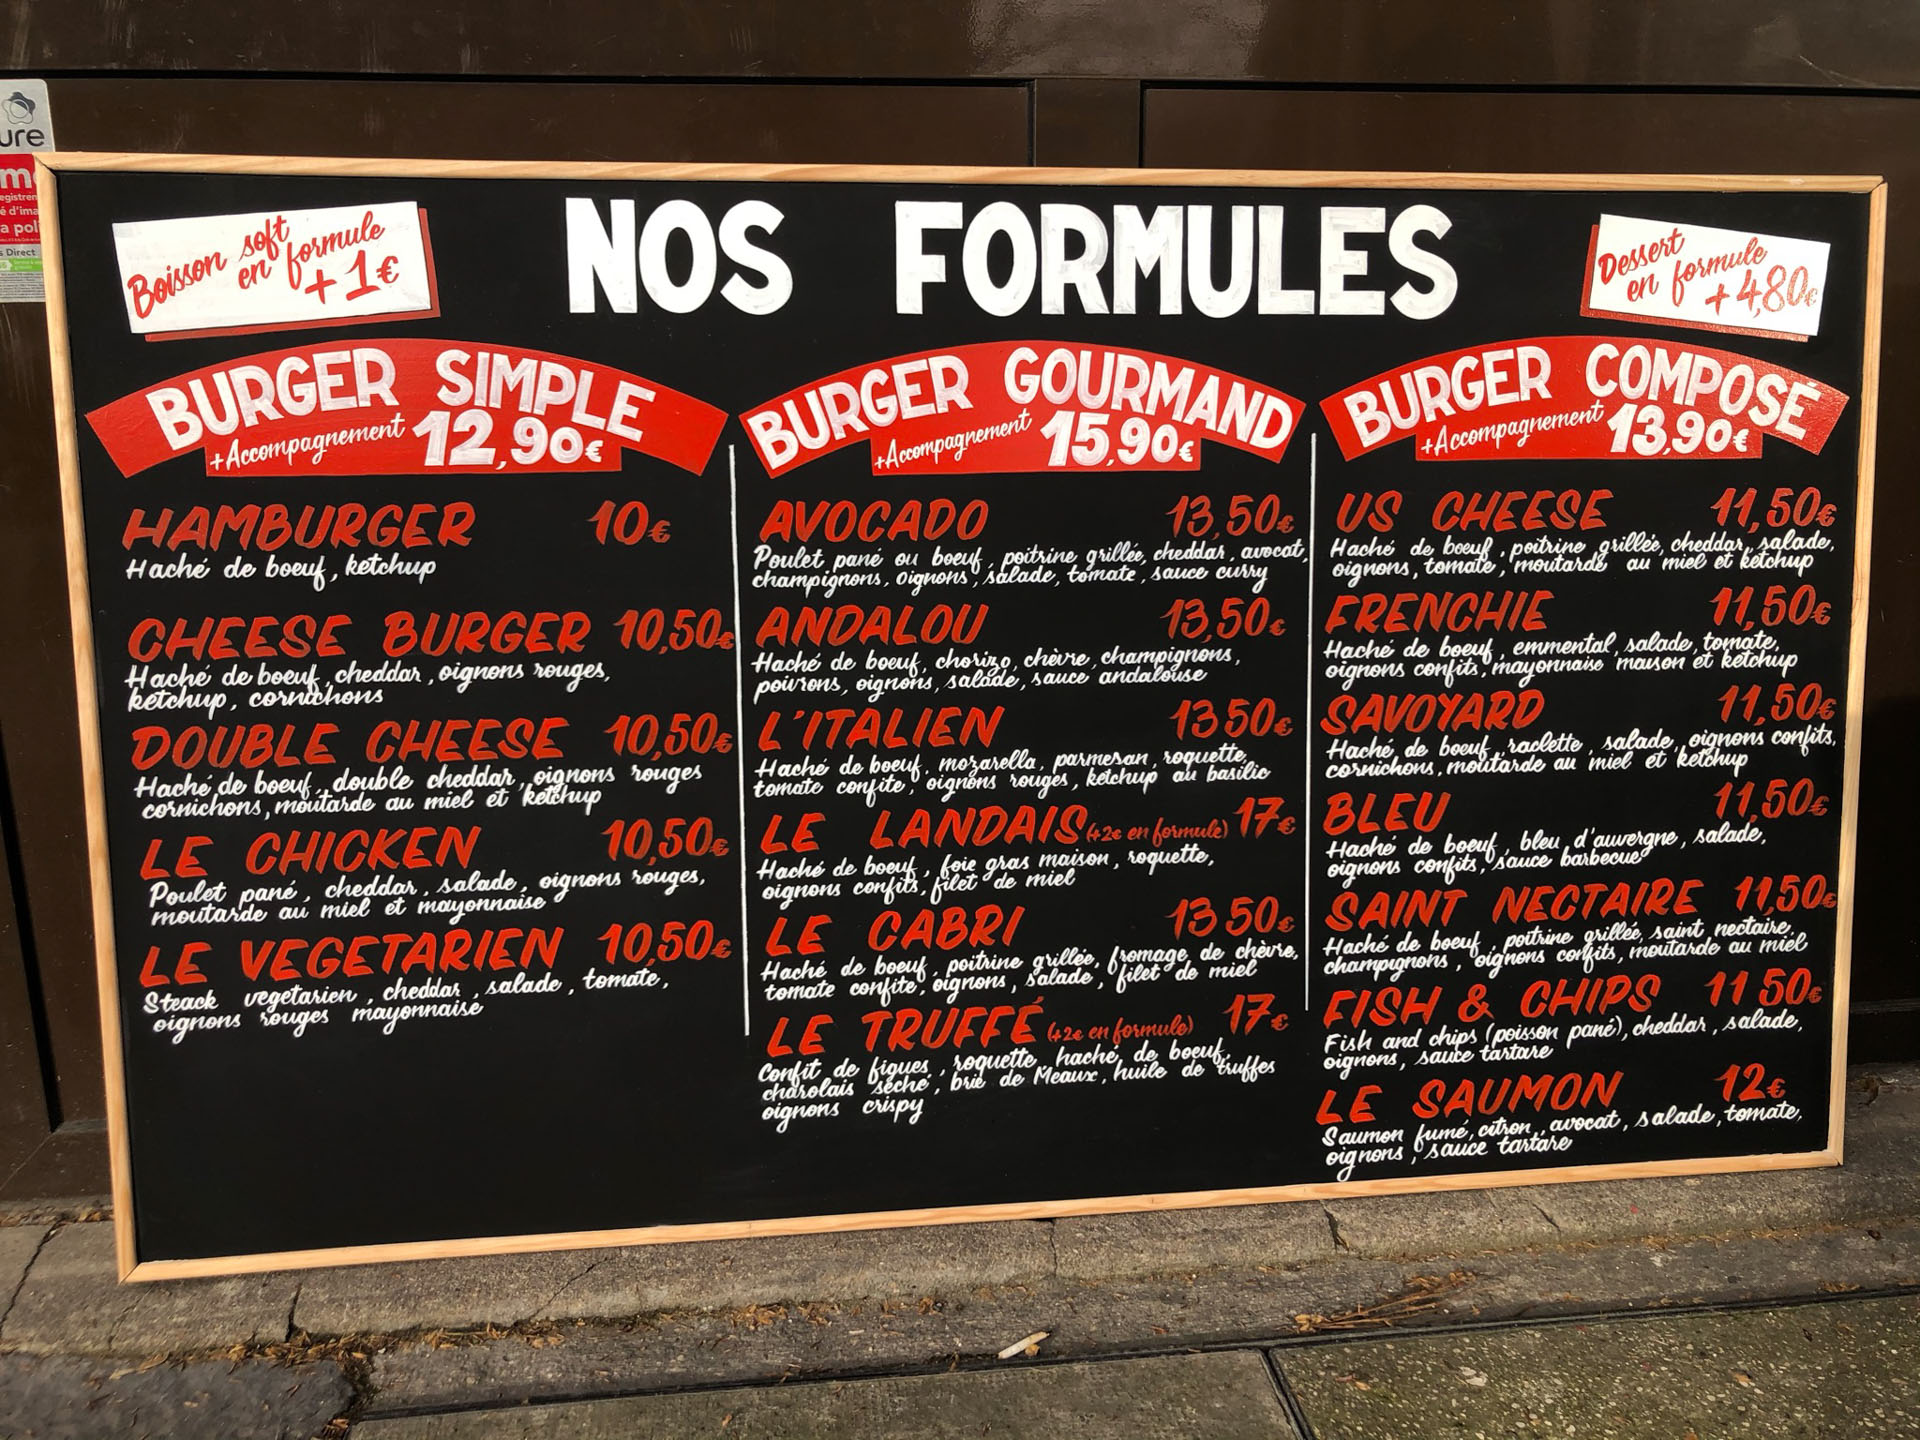 ure
Boisson soft
en formule
+1€
NOS FORMULES
Dessert
en formule
+4,80€
BURGER SIMPLE
+Accompagnement 12,90€
HAMBURGER 10€
Haché de boeuf, ketchup
CHEESE BURGER 10,50€
Haché de boeuf, cheddar, oignons rouges,
ketchup, cornichons
DOUBLE CHEESE 10,50€
Haché de boeuf, double cheddar, oignons rouges
cornichons, moutarde au miel et ketchup
LE CHICKEN 10,50€
Poulet pané, cheddar, salade, oignons rouges,
moutarde au miel et mayonnaise
LE VEGETARIEN 10,50€
Steack vegetarien, cheddar, salade, tomate,
oignons rouges mayonnaise
BURGER GOURMAND
+Accompagnement 15,90€
AVOCADO 13,50€
Poulet pané ou boeuf, poitrine grillée, cheddar, avocat,
champignons, oignons, salade, tomate, sauce curry
ANDALOU 13,50€
Haché de boeuf, chorizo, chèvre, champignons,
poivrons, oignons, salade, sauce andalouse
L'ITALIEN 13 50€
Haché de boeuf, mozarella, parmesan, roquette,
tomate confite, oignons rouges, ketchup au basilic
LE LANDAIS (+2€ en formule) 17€
Haché de boeuf, foie gras maison, roquette,
oignons confits, filet de miel
LE CABRI 13 50€
Haché de boeuf, poitrine grillée, fromage de chèvre,
tomate confite, oignons, salade, filet de miel
LE TRUFFÉ (+2€ en formule) 17€
Confit de figues, roquette, haché de boeuf,
charolais séché, brie de Meaux, huile de truffes
oignons crispy
BURGER COMPOSÉ
+Accompagnement 13,90€
US CHEESE 11,50€
Haché de boeuf, poitrine grillée, cheddar, salade,
oignons, tomate, moutarde au miel et ketchup
FRENCHIE 11,50€
Haché de boeuf, emmental, salade, tomate,
oignons confits, mayonnaise maison et ketchup
SAVOYARD 11,50€
Haché de boeuf, raclette, salade, oignons confits,
cornichons, moutarde au miel et ketchup
BLEU 11,50€
Haché de boeuf, bleu d'auvergne, salade,
oignons confits, sauce barbecue
SAINT NECTAIRE 11,50€
Haché de boeuf, poitrine grillée, saint nectaire,
champignons, oignons confits, moutarde au miel
FISH & CHIPS 11 50€
Fish and chips (poisson pané), cheddar, salade,
oignons, sauce tartare
LE SAUMON 12€
Saumon fumé, citron, avocat, salade, tomate,
oignons, sauce tartare